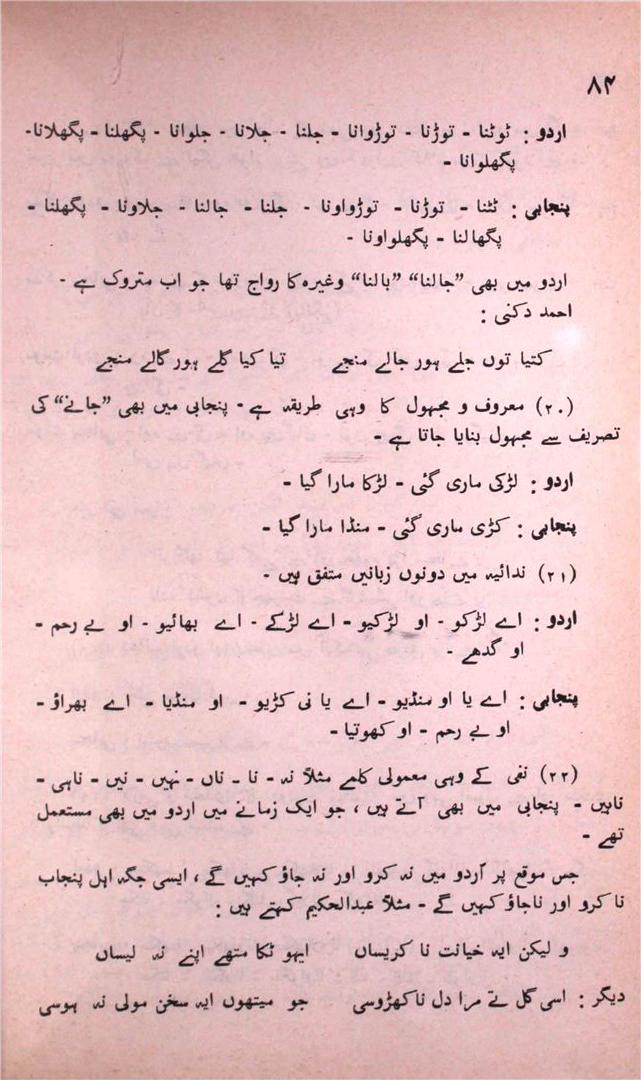 ۸۴
اردو : ٹوٹنا - توڑنا - توڑوانا - جلنا - جلانا - جلوانا - پگھلنا - پگھلانا-
پگھلوانا -
پنجابی : ٹٹنا - توڑنا - توڑواونا - جلنا - جالنا - جلاونا - پگھلنا -
پگھالنا - پگھلواونا -
اردو میں بھی ”جالنا“ ”بالنا“ وغیرہ کا رواج تھا جو اب متروک ہے -
احمد دکنی :
کتیا توں جلے ہور جالے منجے تیا کیا گلے ہور گالے منجے
(۲۰) معروف و مجہول کا وہی طریقہ ہے - پنجابی میں بھی ”جانے“ کی
تصریف سے مجہول بنایا جاتا ہے -
اردو : لڑکی ماری گئی - لڑکا مارا گیا -
پنجابی : کڑی ماری گئی - منڈا مارا گیا -
(۲۱) ندائیہ میں دونوں زبانیں متفق ہیں -
اردو : اے لڑکو - او لڑکیو - اے لڑکے - اے بھائیو - او بے رحم -
او گدھے -
پنجابی : اے یا او منڈیو - اے یا نی کڑیو - او منڈیا - اے بھراؤ -
او بے رحم - او کھوتیا -
(۲۲) نفی کے وہی معمولی کلمے مثلاً نہ - نا - ناں - نہیں - نیں - ناہی -
ناہیں - پنجابی میں بھی آتے ہیں ، جو ایک زمانے میں اردو میں بھی مستعمل
تھے -
جس موقع پر اُردو میں نہ کرو اور نہ جاؤ کہیں گے ، ایسی جگہ اہل پنجاب
نا کرو اور ناجاؤ کہیں گے - مثلاً عبدالحکیم کہتے ہیں :
و لیکن ایہ خیانت نا کریساں ایہو ٹکا متھے اپنے نہ لیساں
دیگر : اسی گل تے مرا دل ناکھڑوسی جو میتھوں ایہ سخن مولی نہ ہوسی